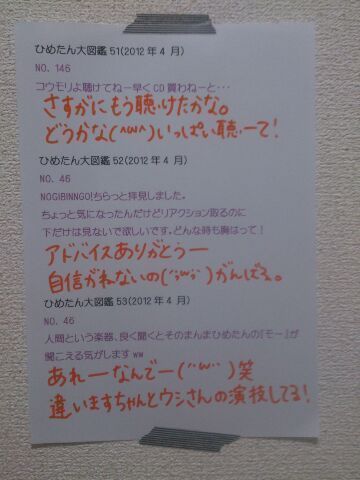 ひめたん大図鑑 51(2012 年 4 月)
NO. 146
コウモリよ聴けてねー早くCD買わねーと・・・
さすがにもう聴けたかな。
どうかな(^ω^)いっぱい聴いーて!
ひめたん大図鑑 52(2012 年 4 月)
NO. 46
NOGIBINNGO!ちらっと拝見しました。
ちょっと気になったんだけどリアクション取るのに
下だけは見ないで欲しいです。どんな時も胸はって!
アドバイスありがとうー
自信がねないの(´;ω;`)がんばる。
ひめたん大図鑑 53(2012 年 4 月)
NO. 46
人間という楽器、良く聞くとそのまんまひめたんの『モー』が
聞こえる気がしますww
あれーなんでー(´・ω・`)笑
違いますちゃんとウシさんの演技してる!